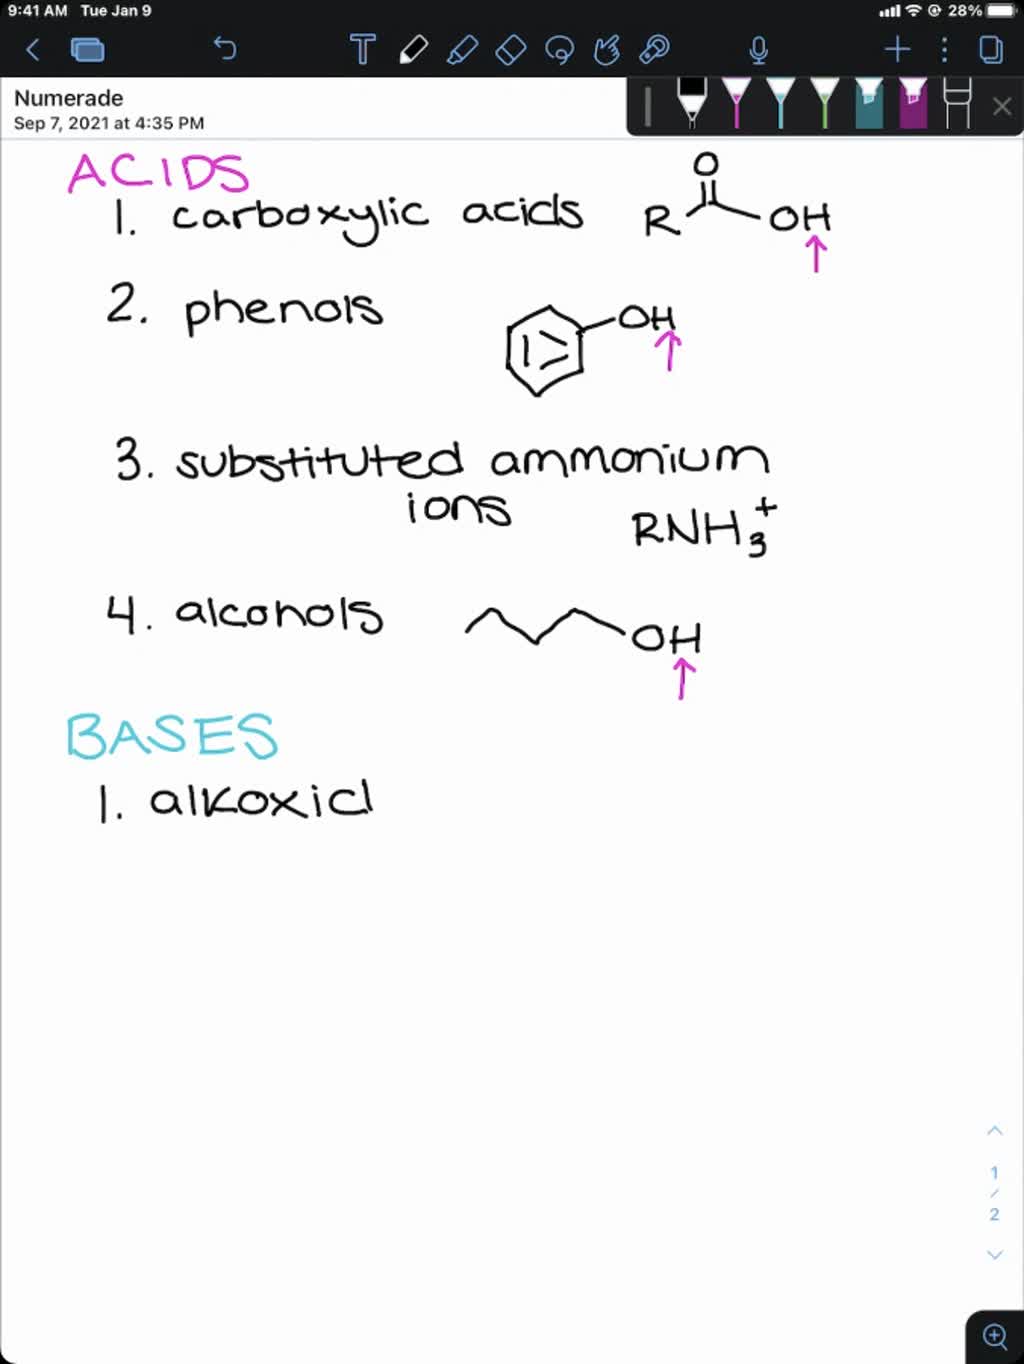 9:41 AM Tue Jan 9 28%
T
Numerade
Sep 7, 2021 at 4:35 PM
ACIDS
1. carboxylic acids R O OH
2. phenols OH
3. substituted ammonium
ions RNH3+
4. alcohols OH
BASES
1. alkoxid
1
/
2